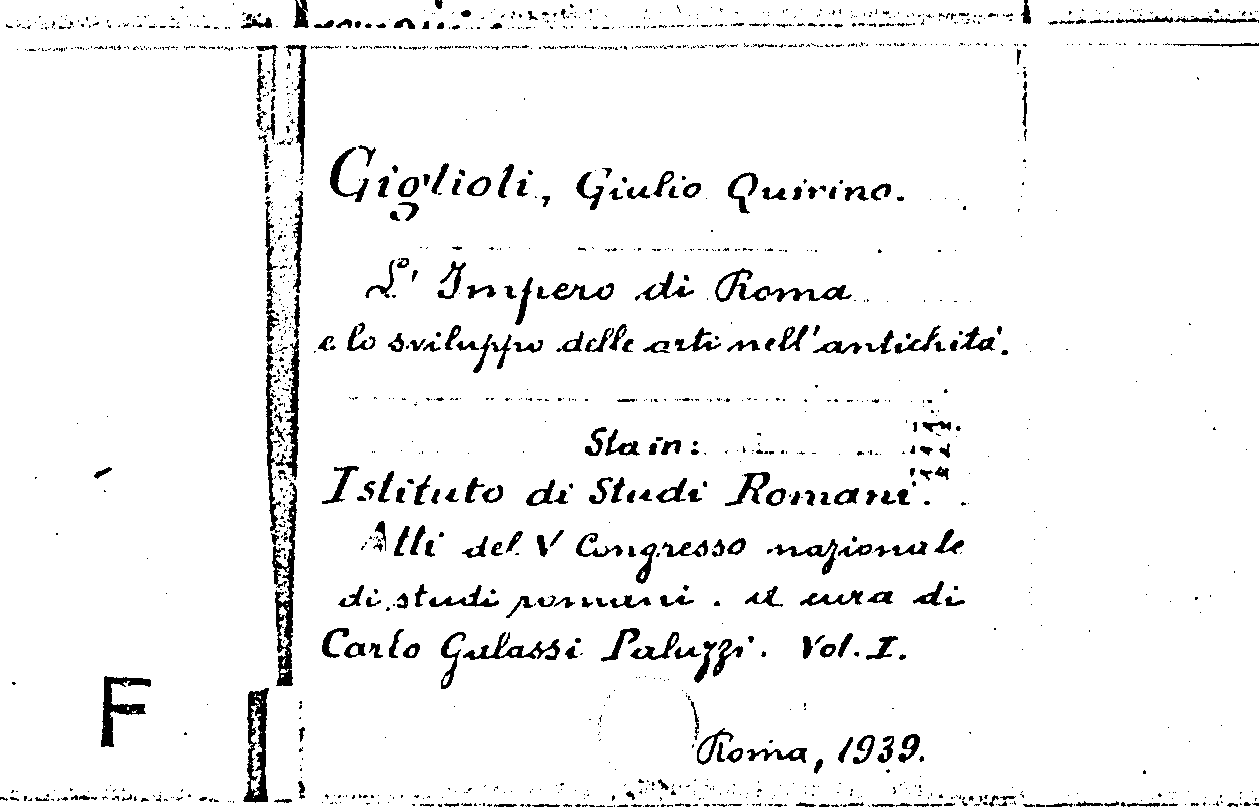 Giglioli, Giulio Quirino.
L' Impero di Roma
e lo sviluppo delle arti nell'antichità.
Sta in:
Istituto di Studi Romani.
Atti del V Congresso nazionale
di studi romani. a cura di
Carlo Galassi Paluzzi. Vol. I.
F
Roma, 1939.